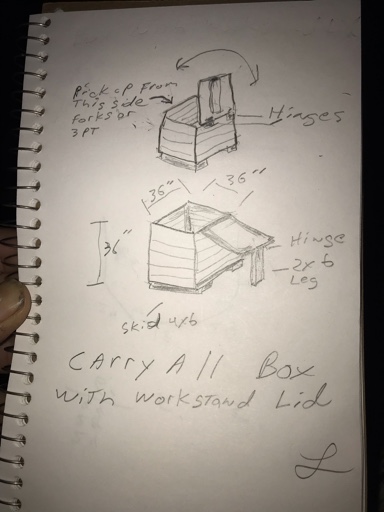 Pick up From
This side
forks or
3 PT
Hinges
36"
36"
36"
Hinge
2x6
Leg
skid 4x6
Carry All Box
with workstand Lid
L